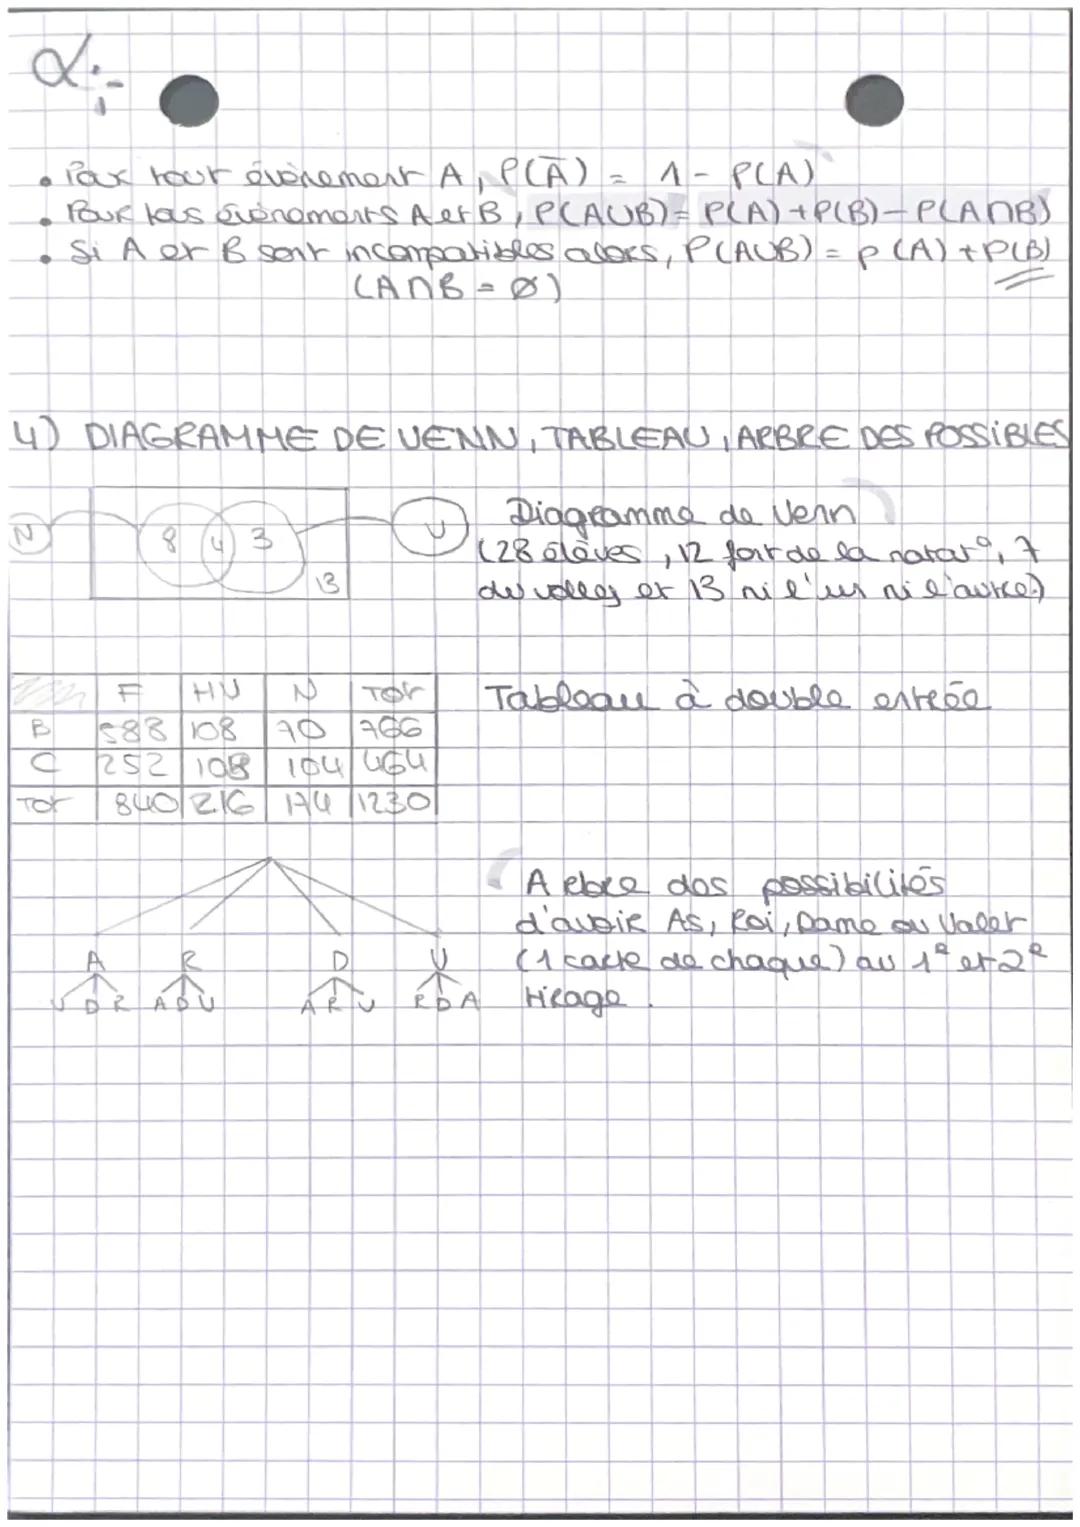 α:-
• Pour tout évènement A, P(Ā) = 1 - P(A)
• Pour tous évènements A et B, P(A∪B) = P(A)+P(B)-P(A∩B)
• Si A et B sont incompatibles alors, P(A∪B) = p(A)+P(B)
(A∩B = ∅)
4) DIAGRAMME DE VENN, TABLEAU, ARBRE DES POSSIBLES
N 8 4 3 13 V
Diagramme de Venn
(28 élèves, 12 font de la natat°, 7
du volley et 13 ni l'un ni l'autre)
Tableau à double entrée
F HV N Tot
B 588 108 70 766
C 252 108 104 464
Tot 840 216 174 1230
Arbre des possibilités
d'avoir As, Roi, Dame ou Valet
(1 carte de chaque) au 1e et 2e
tirage.
A R D V
V D R A D V A R V R D A